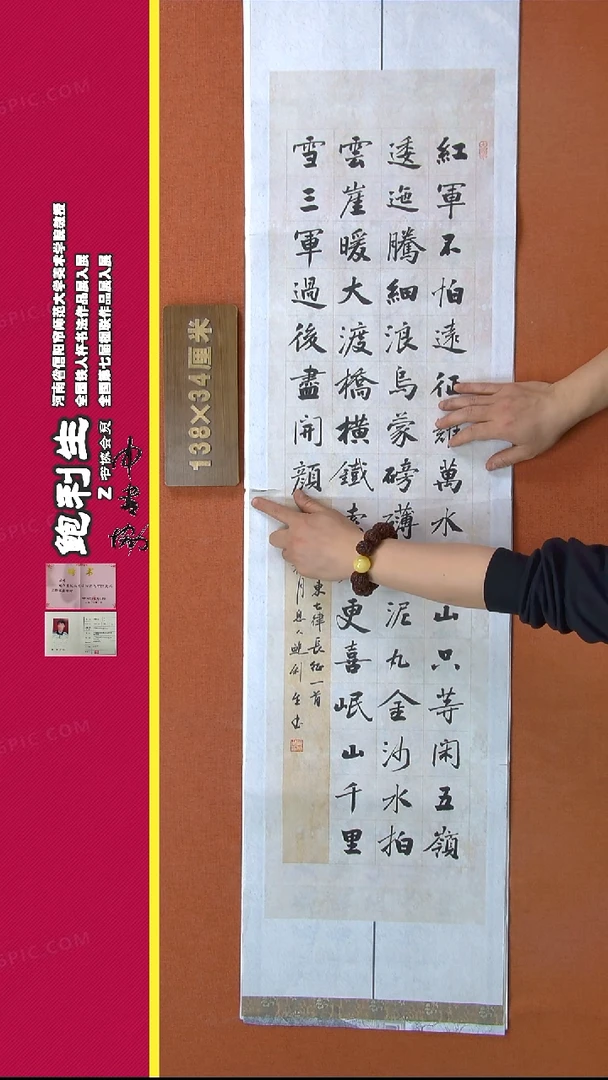 紅軍不怕遠征難萬水山只等閑五嶺
逶迤騰細浪烏蒙磅礴泥丸金沙水拍
雲崖暖大渡橋橫鐵索更喜岷山千里
雪三軍過後盡開顏
東七律長征一首
月 鮑利生书
138×34厘米
河南省信阳市师范大学美术学院教授
全国 人杯书法作品展入展
全国第七届楹联作品展入展
鲍利生
书协会员